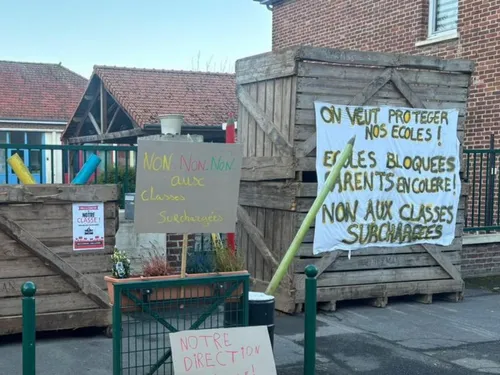 NON.NON.NON
aux
Classes
Surchargées
ON VEUT PROTEGER
NOS ECOLES !
ECOLES BLOQUÉES
PARENTS EN COLERE !
NON AUX CLASSES
SURCHARGEES
NOTRE
CLASSE !
NOTRE
DIRECTION